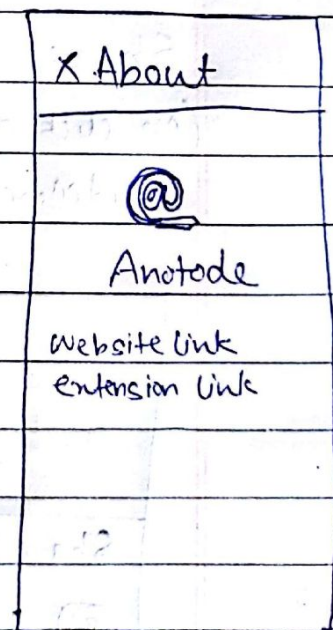 X About
@
Anotode
website link
extension link